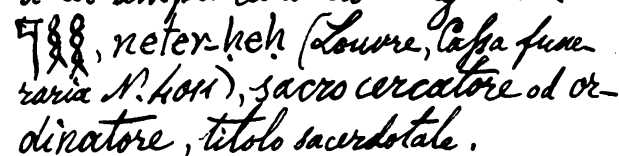 𓊹𓎛𓎛, neter-ḥeḥ (Louvre, Cassa fune-
raria N. 4011), sacro cercatore od or-
dinatore, titolo sacerdotale.